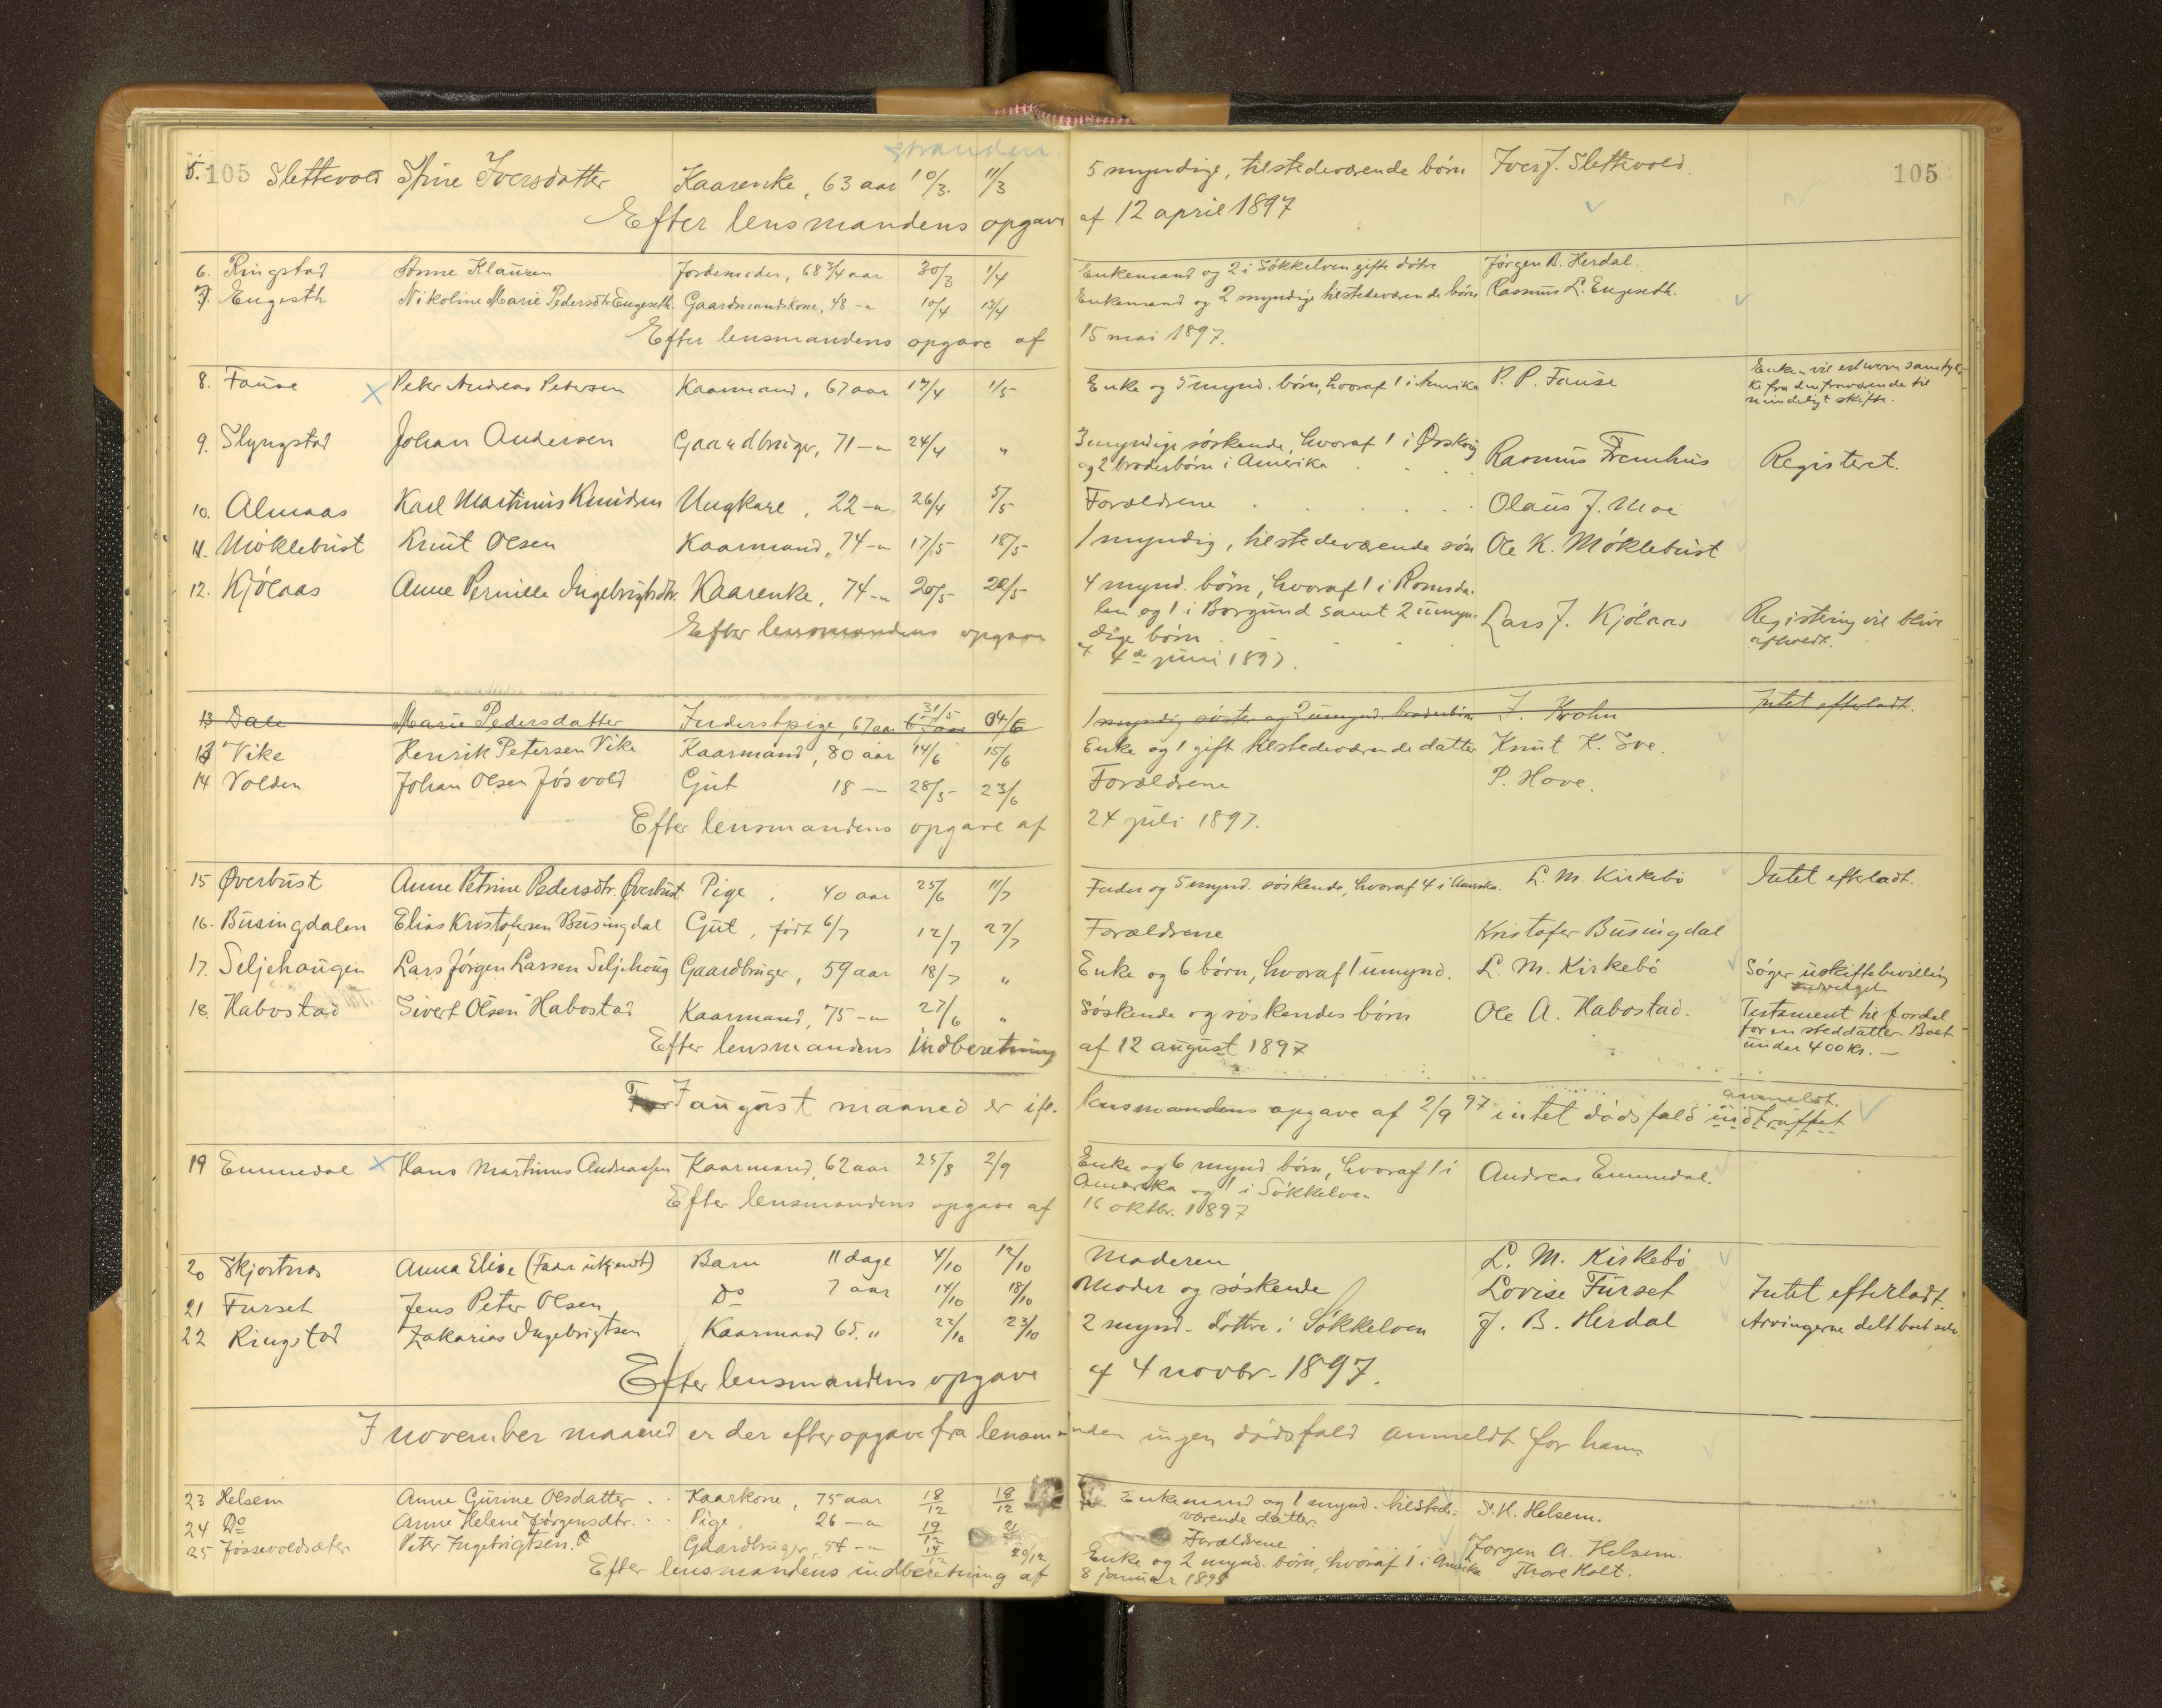 Stranden
5. 105 Slettevold Stine Iversdatter Kaarenke, 63 aar 10/3. 11/3 5 myndige, tilstedeværende børn Iver J. Slettevold. 105
Efter lensmandens opgave af 12 april 1897
6. Ringstad Anne Klausen Jordemoder, 68 3/4 aar 30/3 1/4 Enkemand og 2 i Søkkelven gifte døtre Jørgen B. Herdal.
7. Engeseth Nikoline Marie Pedersdtr. Engeseth Gaardmandskone, 48 -"- 10/4 13/4 Enkemand og 2 myndige tilstedeværende børn Rasmus L. Engeseth.
Efter lensmandens opgave af 15 mai 1897.
8. Fause Peter Andreas Petersen Kaarmand, 67 aar 17/4 1/5 Enke og 5 mynd. børn, hvoraf 1 i Amerika P. P. Fause Enken vil erhverve samtyk-
ke fra den fraværende til
mindeligt skifte.
9. Slyngstad Johan Andersen Gaardbruger, 71 -"- 24/4 " 3 myndige søskende, hvoraf 1 i Ørskog
og 2 broderbørn i Amerika Rasmus Fremhus Registeret.
10. Almaas Karl Martinus Knudsen Ungkarl, 22 -"- 26/4 5/5 Forældrene Olaus J. Moe
11. Møklebust Knut Olsen Kaarmand, 74 -"- 17/5 18/5 1 myndig, tilstedeværende søn Ole K. Møklebust
12. Kjølaas Anne Pernille Ingebrigtsdtr. Kaarenke, 74 -"- 20/5 22/5 4 mynd. børn, hvoraf 1 i Romsda-
len og 1 i Borgund samt 2 umyn-
dige børn Lars J. Kjølaas Registering vil blive
afholdt.
Efter lensmandens opgave af 4de juni 1897.
13 Dale Marie Pedersdatter Inderstpige, 67 aar 31/5 04/6 1 myndig søster og 2 umynd. broderbørn J. Krohn Intet efterladt.
13 Vike Henrik Petersen Vike Kaarmand, 80 aar 14/6 15/6 Enke og 1 gift tilstedeværende datter Knut K. Sve.
14 Volden Johan Olsen Jøsvold Gut 18 -"- 28/5 23/6 Forældrene P. Hove.
Efter lensmandens opgave af 24 juli 1897.
15 Øverbust Anne Petrine Pedersdtr. Øverbust Pige, 40 aar 25/6 11/7 Fader og 5 mynd. søskende, hvoraf 4 i Amerika. L. M. Kirkebø Intet efterladt.
16. Busingdalen Elias Kristofersen Busingdal Gut, født 6/7 12/7 27/7 Forældrene Kristofer Busingdal
17. Seljehaugen Lars Jørgen Larsen Seljehoug Gaardbruger, 59 aar 18/7 " Enke og 6 børn, hvoraf 1 umynd. L. M. Kirkebø Søger uskiftebevilling
18. Habostad Sivert Olsen Habostad Kaarmand, 75 -"- 27/6 " Søskende og søskendes børn Ole A. Habostad. Testament til fordel
for en steddatter. Boet
under 400 kr. —
Efter lensmandens indberetning af 12 august 1897
I august maaned er ifl. lensmandens opgave af 2/9 97 intet dødsfald indtruffet
anmeldt.
19 Emmedal Hans Martinus Andreassen Kaarmand, 62 aar 25/8 2/9 Enke og 6 mynd. børn, hvoraf 1 i
Amerika og 1 i Søkkelven Andreas Emmedal.
Efter lensmandens opgave af 16 oktbr. 1897
20 Skjortnes Anna Elise (Faar ukjendt) Barn 11 dage 4/10 12/10 Moderen L. M. Kirkebø
21 Furset Jens Peter Olsen Do 7 aar 14/10 18/10 Moder og søskende Lovise Furset Intet efterladt.
22 Ringstad Zakarias Ingebrigtsen Kaarmand 65 " 22/10 23/10 2 mynd. døttre i Søkkelven J. B. Herdal Arvingerne delt boet selv.
Efter lensmandens opgave af 4 novbr. 1897.
I november maaned er der efter opgave fra lensmanden ingen dødsfald anmeldt for ham.
23 Helsem Anne Gurine Olsdatter Kaarkone, 75 aar 18/12 18/12 Enkemand og 1 mynd. tilstede-
værende datter. S. K. Helsem.
24 Do Anne Helene Jørgensdtr. Pige, 26 -"- 19/12 21 Forældrene Jørgen A. Helsem.
25 Jøssevoldsæter Peter Ingebrigtsen Gaardbruger, 54 -"- 14/12 20/12 Enke og 2 mynd. børn, hvoraf 1 i Amerika Thore Holt.
Efter lensmandens indberetning af 8 januar 1898